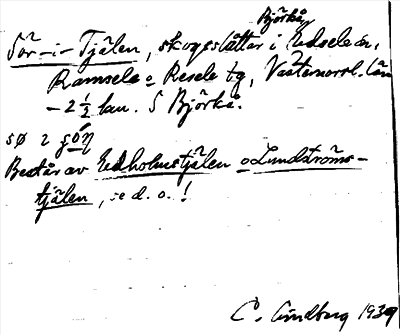 Björkå,
Sör-i-Tjälen, skogsslåttar i Edsele sn,
Ramsele o Resele tg, Västernorrl. län
- 2 1/2 km. S Björkå.
sø i 
Består av Edholmstjälen o Lundströms-
tjälen, se d. o. !
C. Lindberg 1939